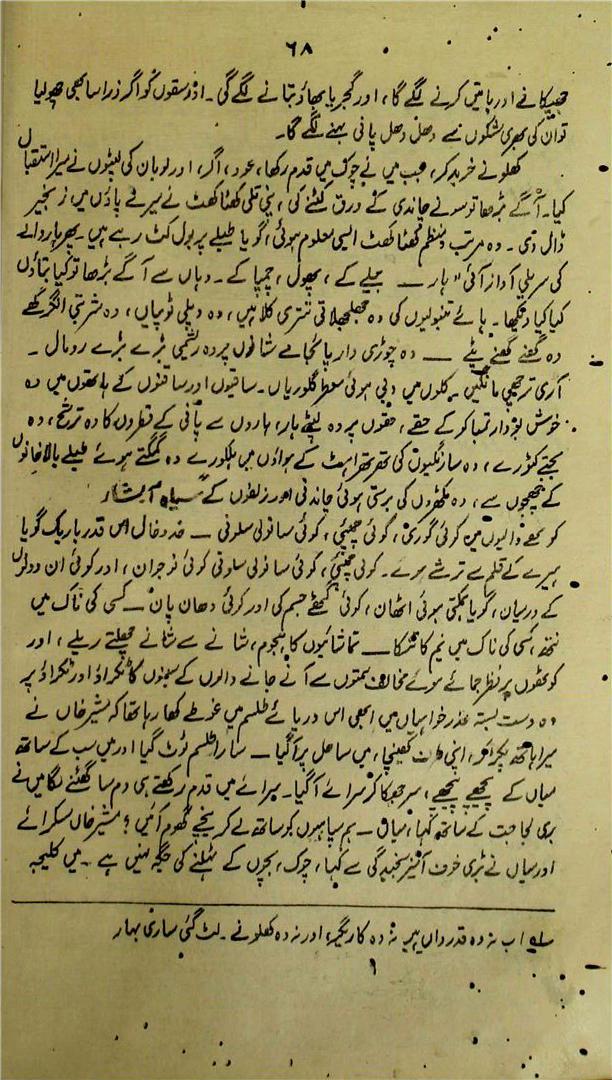 ٦٨
جھپکانے اور باتیں کرنے لگے گا، اور گجریا بھاؤ بتانے لگے گی۔ اور سقوں کو اگر ذرا سا بھی چھو لیا
تو ان کی بھری مشکوں سے دھل دھل پانی بہنے لگے گا۔
کھلونے خرید کر، جب میں نے چوک میں قدم رکھا، عود، اگر، اور لوبان کی لپٹوں نے میرا استقبال
کیا۔ آگے بڑھا تو سونے چاندی کے ورق کٹنے کی، نپی تلی کھٹا کھٹ نے میرے پاؤں میں زنجیر
ڈال دی۔ وہ مرتب و منظم کھٹا کھٹ ایسی معلوم ہوئی، گویا طبلے پر بول کٹ رہے ہیں۔ پھر ہار والے
کی سریلی آواز آئی "ہار — بیلے کے، پھول، چمپا کے۔ وہاں سے آگے بڑھا تو کیا بتاؤں
کیا کیا دیکھا۔ ہائے تنبولیوں کی وہ جھلجھلاتی کلاہیں، وہ دپلی ٹوپیاں، وہ شربتی انگرکھے
وہ گھنے گھنے پٹے — وہ چوڑی دار پائجامے شانوں پر وہ ریشمی بڑے بڑے رومال۔
آڑی ترچھی مانگیں۔ کلوں میں دبی ہوئی معطر گلوریاں۔ ساقیوں اور ساقنوں کے ہاتھوں میں وہ
خوش بودار تمباکو کے حقے، حقوں پر وہ لپٹے ہار، ہاروں سے پانی کے قطروں کا وہ ترشح، وہ
بجتے کٹورے، وہ سازنگیوں کی تھرتھراہٹ کے ہواؤں میں ہلکورے وہ گمکتے ہوئے طبلے بالاخانوں
کے چھجوں سے، وہ مکھڑوں کی برستی ہوئی چاندنی اور زلفوں کے سیاہ آبشار
کوٹھے والیوں میں کوئی گوری، کوئی چمپئی، کوئی سانولی سلونی — خد و خال اس قدر باریک گویا
ہیرے کے قلم سے ترشے ہوئے۔ کوئی چمپئی، کوئی سانولی سلونی کوئی نوجوان، اور کوئی ان دونوں
کے درمیان، گویا اٹھان، کوئی گٹھے جسم کی اور کوئی دھان پان — کسی کی ناک میں
نتھ، کسی کی ناک میں نیم کا تنکا — تماشائیوں کا ہجوم، شانے سے شانے چھلتے ریلے، اور
کوٹھوں پر نظر جمائے ہوئے مخالف سمتوں سے آنے جانے والوں کے سینوں کا ٹکراؤ اور ٹکراؤ پر
وہ دست بستہ عذر خواہیاں میں ابھی اس دریائے طلسم میں غوطے کھا رہا تھا کہ بشیر خاں نے
میرا ہاتھ پکڑ کر، اپنی طرف کھینچا، میں ساحل پر آ گیا — سارا طلسم ٹوٹ گیا اور میں سب کے ساتھ
میاں کے پیچھے پیچھے، سر جھکا کر سرائے آ گیا۔ سرائے میں قدم رکھتے ہی دم سا گھٹنے لگا میں نے
بڑی لجاجت کے ساتھ کہا، میاں — ہم سپاہیوں کو ساتھ لے کر نیچے گھوم آئیں؟ بشیر خاں مسکرائے
اور میاں نے بڑی خوف آمیز سنجیدگی سے کہا، چوک، بچوں کے ٹہلنے کی جگہ نہیں ہے۔ میں کلیجہ
سلہ اب نہ وہ قدرداں ہیں نہ وہ کاریگر، اور نہ وہ کھلونے۔ لٹ گئی ساری بہار